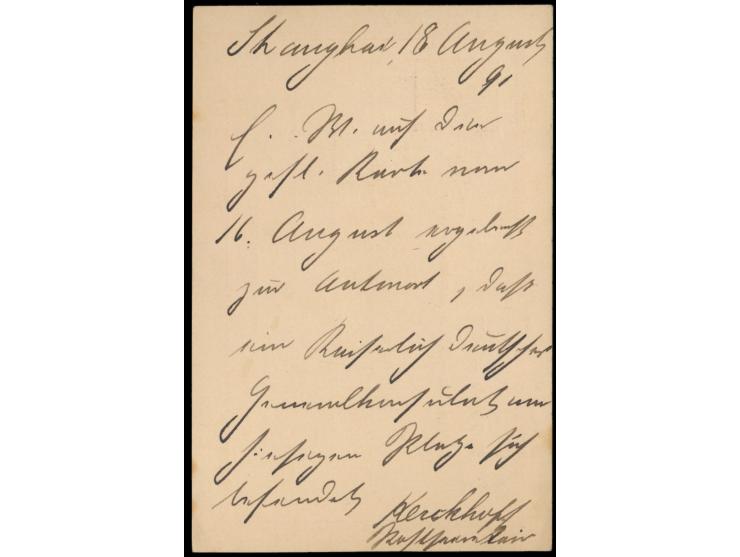 Shanghai, 18 August
91
E. W. auf die
gefl. Karte vom
16. August ergebenst
zur Antwort, daß
ein Kaiserlich Deutsches
Generalkonsulat am
hiesigen Platze sich
befindet
Kerckhoff
Postsecretair